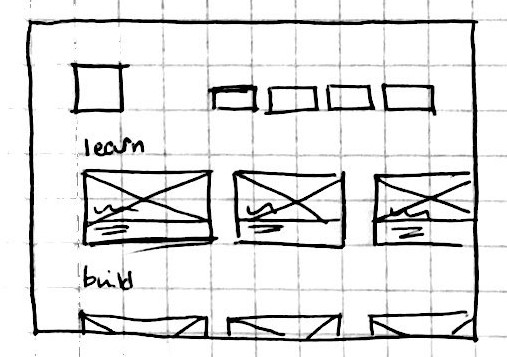 learn
build